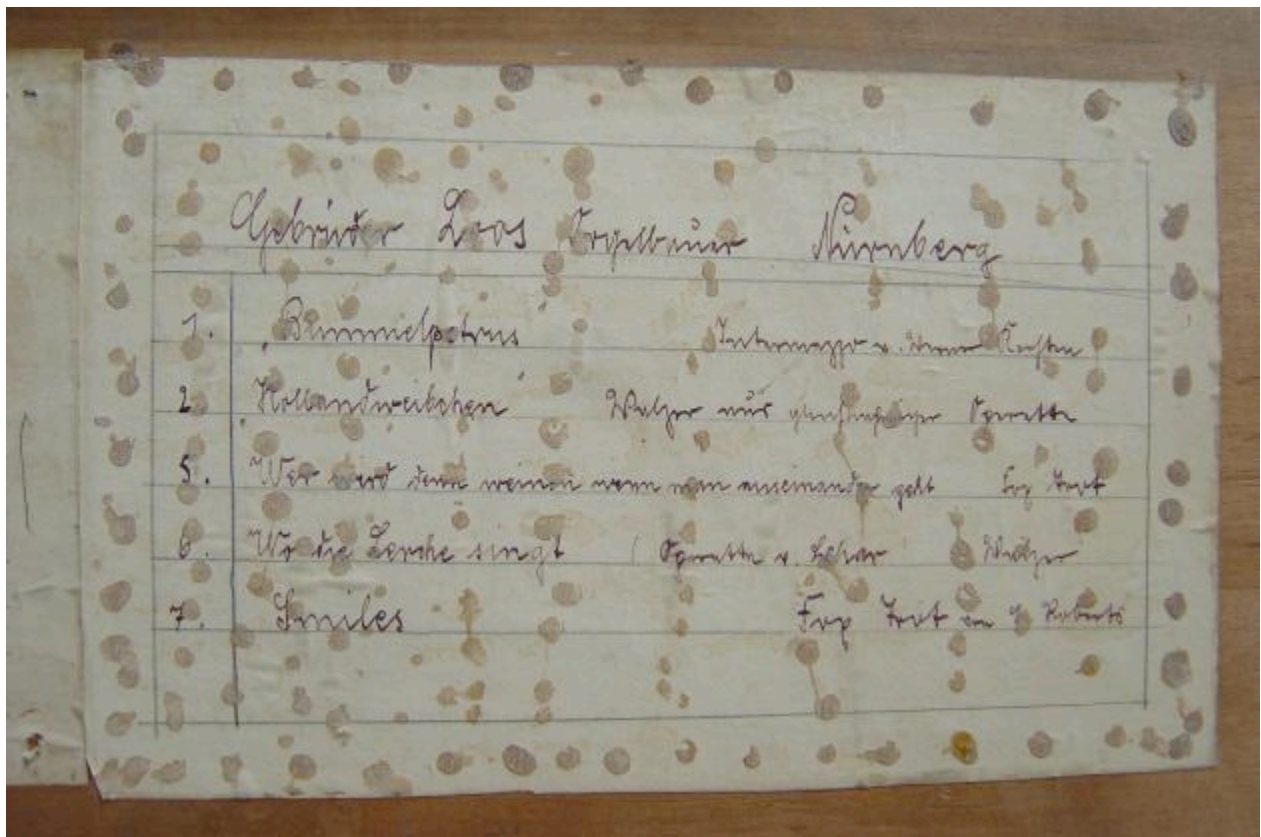 Gebrüder Loos Orgelbauer Nürnberg
1. „Bummelpetrus" Intermezzo v. Werner Kersten
2. Hollandweibchen Walzer aus gleichnamiger Operette
5. Wer wird denn weinen wenn man auseinander geht Fox Trot
6. Wo die Lerche singt ( Operette v. Lehar Walzer
7. Smiles Fox Trot von Roberts